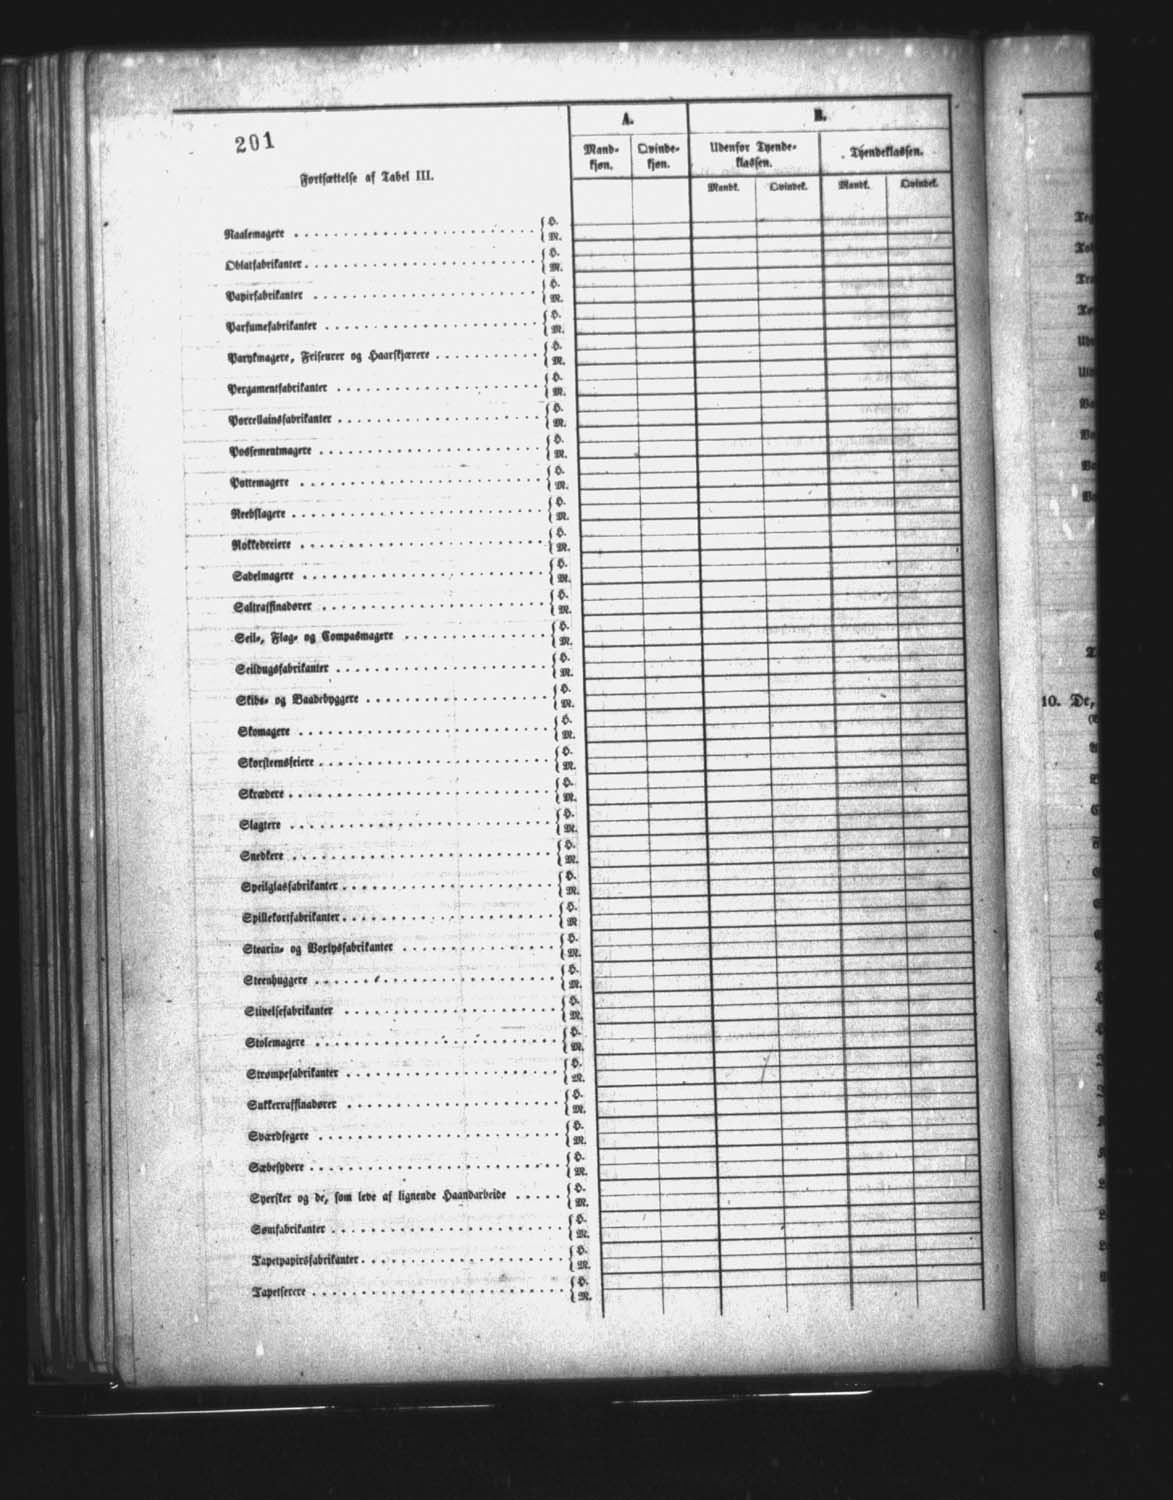 201
Fortsættelse af Tabel III.
A.
B.
Mand-
kjøn.
Qvinde-
kjøn.
Udenfor Tyende-
klassen.
Tyendeklassen.
Mandk.
Qvindek.
Mandk.
Qvindek.
Naalemagere { H.
M.
Oblatfabrikanter { H.
M.
Papirfabrikanter { H.
M.
Parfumefabrikanter { H.
M.
Parykmagere, Friseurer og Haarskjærere { H.
M.
Pergamentfabrikanter { H.
M.
Porcellainsfabrikanter { H.
M.
Possementmagere { H.
M.
Pottemagere { H.
M.
Reebslagere { H.
M.
Rokkedreiere { H.
M.
Sadelmagere { H.
M.
Saltraffinadører { H.
M.
Seil-, Flag- og Compasmagere { H.
M.
Seildugsfabrikanter { H.
M.
Skibs- og Baadebyggere { H.
M.
Skomagere { H.
M.
Skorsteensfeiere { H.
M.
Skrædere { H.
M.
Slagtere { H.
M.
Snedkere { H.
M.
Speilglasfabrikanter { H.
M.
Spillekortfabrikanter { H.
M
Stearin- og Voxlysfabrikanter { H.
M.
Steenhuggere { H.
M.
Stivelsefabrikanter { H.
M.
Stolemagere { H.
M.
Strømpefabrikanter { H.
M.
Sukkerraffinadører { H.
M.
Sværdfegere { H.
M.
Sæbesydere { H.
M.
Syersker og de, som leve af lignende Haandarbeide { H.
M.
Sømfabrikanter { H.
M.
Tapetpapirsfabrikanter { H.
M.
Tapetserere { H.
M.
10. De,